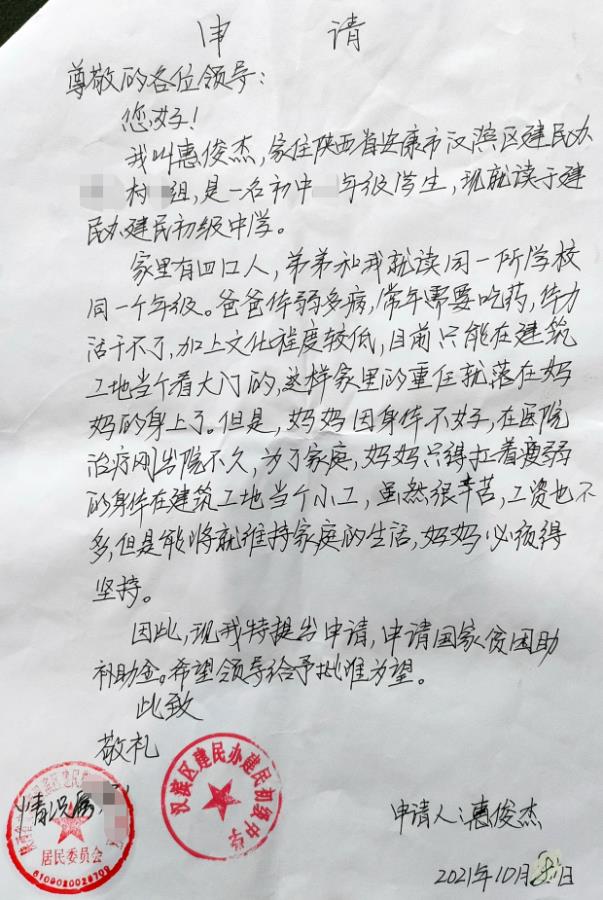 申 请
尊敬的各位领导:
您好!
我叫惠俊杰,家住陕西省安康市汉滨区建民办
村 组,是一名初中 年级学生,现就读于建
民办建民初级中学。
家里有四口人,弟弟和我就读同一所学校
同一个年级。爸爸体弱多病,常年需要吃药,体力
活干不了,加上文化程度较低,目前只能在建筑
工地当个看大门的,这样家里的重任就落在妈
妈的身上了。但是,妈妈因身体不好,在医院
治疗刚出院不久,为了家庭,妈妈只得拉着瘦弱
的身体在建筑工地当个小工,虽然很辛苦,工资也不
多,但是能将就维持家庭的生活,妈妈必须得
坚持。
因此,现我特提出申请,申请国家贫困助
补助金。希望领导给予批准为望。
此致
敬礼
汉滨区建民办建民初级中学
情况属
居民委员会
6109020026709
申请人:惠俊杰
2021年10月 日